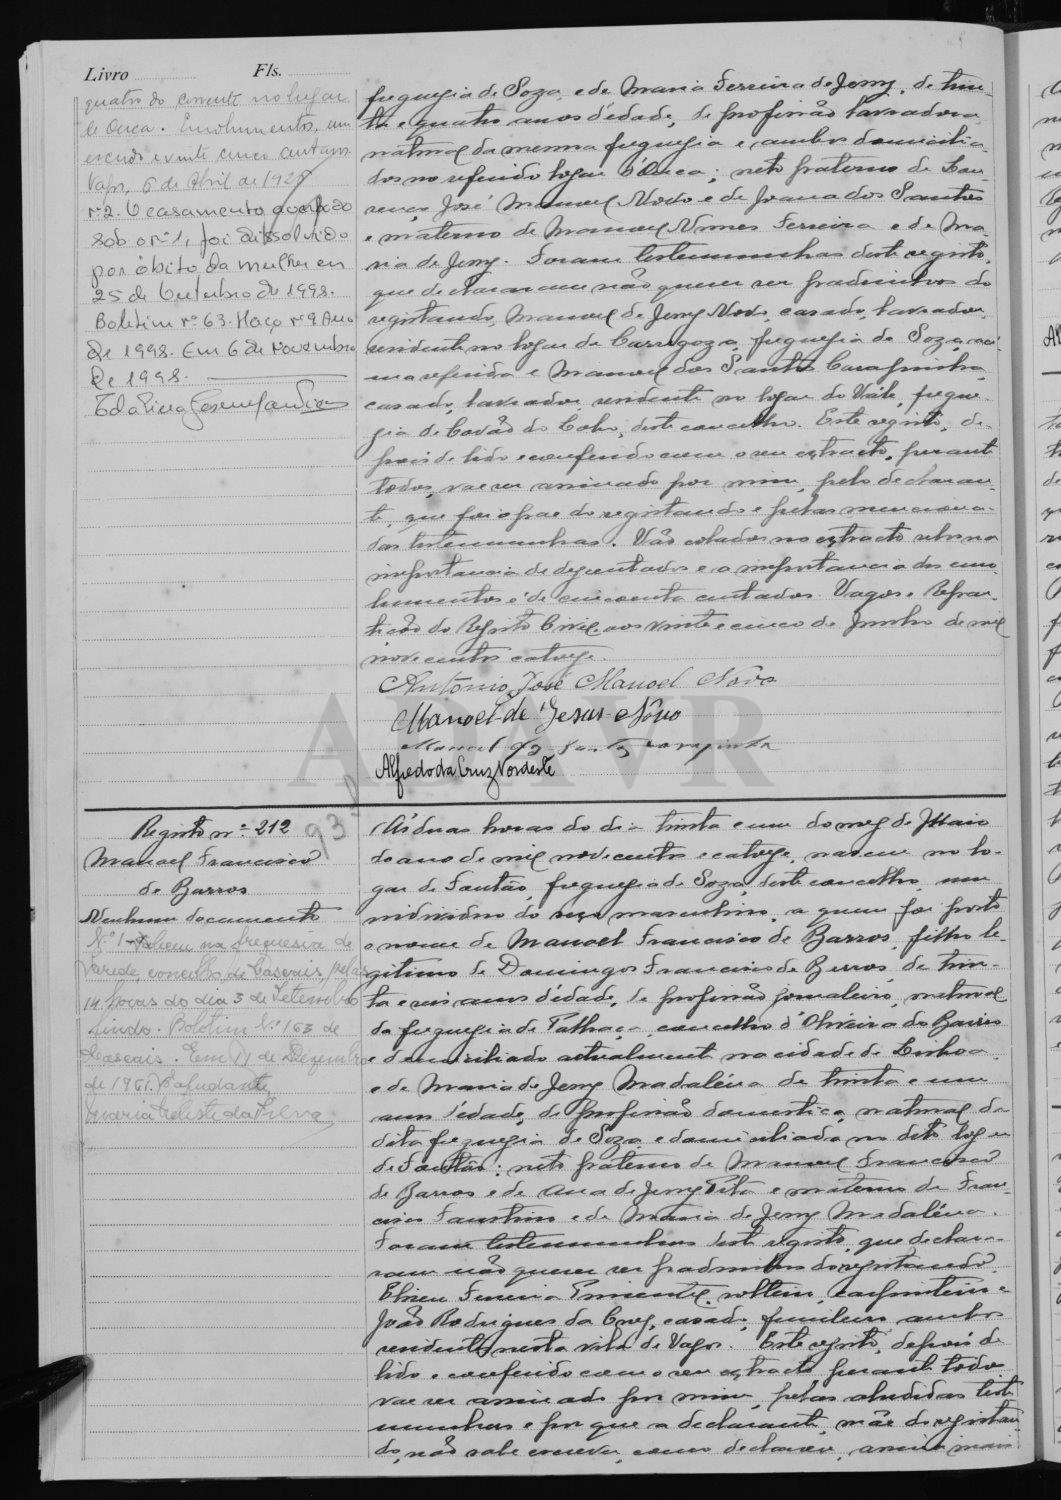 Livro Fls.
quatro do corrente no lugar
de Ouca. Emolumentos, um
escudo e vinte cinco centavos
Vagos, 6 de Abril de 1925
nº 2. O casamento averbado
sob o nº 1, foi dissolvido
por óbito da mulher em
25 de Outubro de 1998.
Boletim nº 63. Maço nº 9 Ano
de 1998. Em 6 de Novembro
de 1998.
freguezia de Soza, e de Maria Ferreira de Jesus, de trin-
ta e quatro anos d'edade, de profissão lavradora
natural da mesma freguezia e ambos domicilia-
dos no referido logar d'Ouca; neto paterno de Lou-
renço José Manuel Novo e de Joana dos Santos
e materno de Manoel Nunes Ferreira e de Ma-
ria de Jesus. Foram testemunhas deste registo,
que declararam não querer ser padrinhos do
registando, Manuel de Jesus Novo, casado, lavrador,
residente no logar de Carregoza, freguezia de Soza, aci-
ma referida e Manuel dos Santos Carapinha,
casado, lavrador, residente no logar do Vale, fregue-
zia de Covão do Lobo, deste concelho. Este registo, de-
pois de lido e conferido com o seu extracto, perante
todos, vae ser assinado por mim, pelo declaran-
te, que foi o pae do registando e pelas menciona-
das testemunhas. Vão colados no extracto selos na
importancia de dezentados e a importancia dos emo-
lumentos é de cincoenta centavos. Vagos e Repar-
tição do Registo Civil, aos vinte e cinco de Junho de mil
novecentos catorze.
Antonio José Manoel Novo
Manoel de Jesus Novo
Manuel dos Santos Carapinha
Alfredo da Cruz Nordeste
ADAVR
Registo nº 212
93
Manoel Francisco
de Barros
Nenhum documento
N.º 1 - Faleceu na freguesia de
Parede, concelho de Cascais, pelas
14 horas do dia 3 de Setembro
findo. Boletim N.º 163 de
Cascais. Em 11 de Dezembro
de 1961. O ajudante,
Maria Celeste da Silva
Ás duas horas do dia trinta e um do mez de Maio
do ano de mil novecentos e catorze, nasceu no lo-
gar de Fontão, freguezia de Soza, deste concelho, um
individuo do sexo masculino, a quem foi posto
o nome de Manoel Francisco de Barros, filho le-
gitimo de Domingos Francisco de Barros, de trin-
ta e seis anos d'edade, de profissão jornaleiro, natural
da freguezia de Palhaça, concelho d'Oliveira do Bairro
e domiciliado actualmente na cidade de Lisboa
e de Maria de Jesus Madaléna de trinta e um
anos d'edade, de profissão domestica, natural da
dita freguezia de Soza e domiciliada no dito logar
de Fontão; neto paterno de Manuel Francisco
de Barros e de Ana de Jesus Pita e materno de Fran-
cisco Faustino e de Maria de Jesus Madaléna.
Foram testemunhas deste registo, que declara-
ram não querer ser padrinhos do registando,
Elizeu Ferreira Pimentel, solteiro, carpinteiro e
João Rodrigues da Cruz, casado, funileiro, ambos
residentes nesta vila de Vagos. Este registo, depois de
lido e conferido com o seu extracto perante todos
vae ser assinado por mim, pelas aludidas teste-
munhas e por que a declarante, mãe do registan-
do, não sabe escrever, como declarou, assina mais